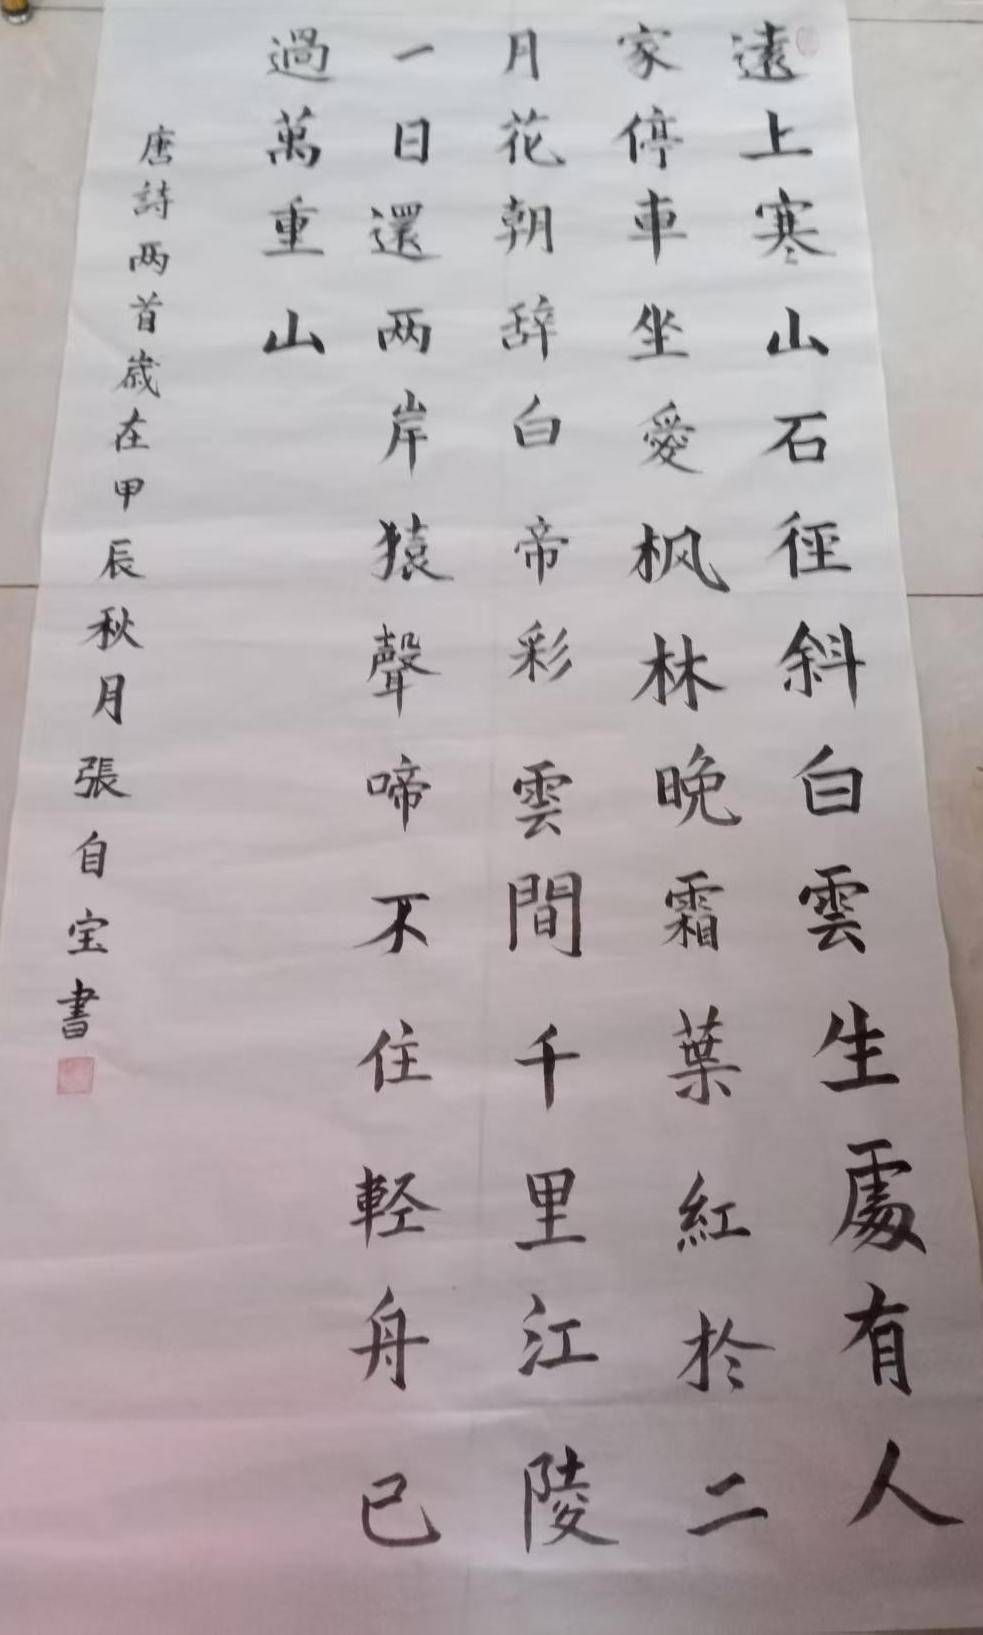 遠上寒山石徑斜白雲生處有人
家停車坐愛枫林晚霜葉紅於二
月花朝辞白帝彩雲間千里江陵
一日還两岸猿聲啼不住軽舟已
過萬重山
唐詩两首歲在甲辰秋月張自宝書